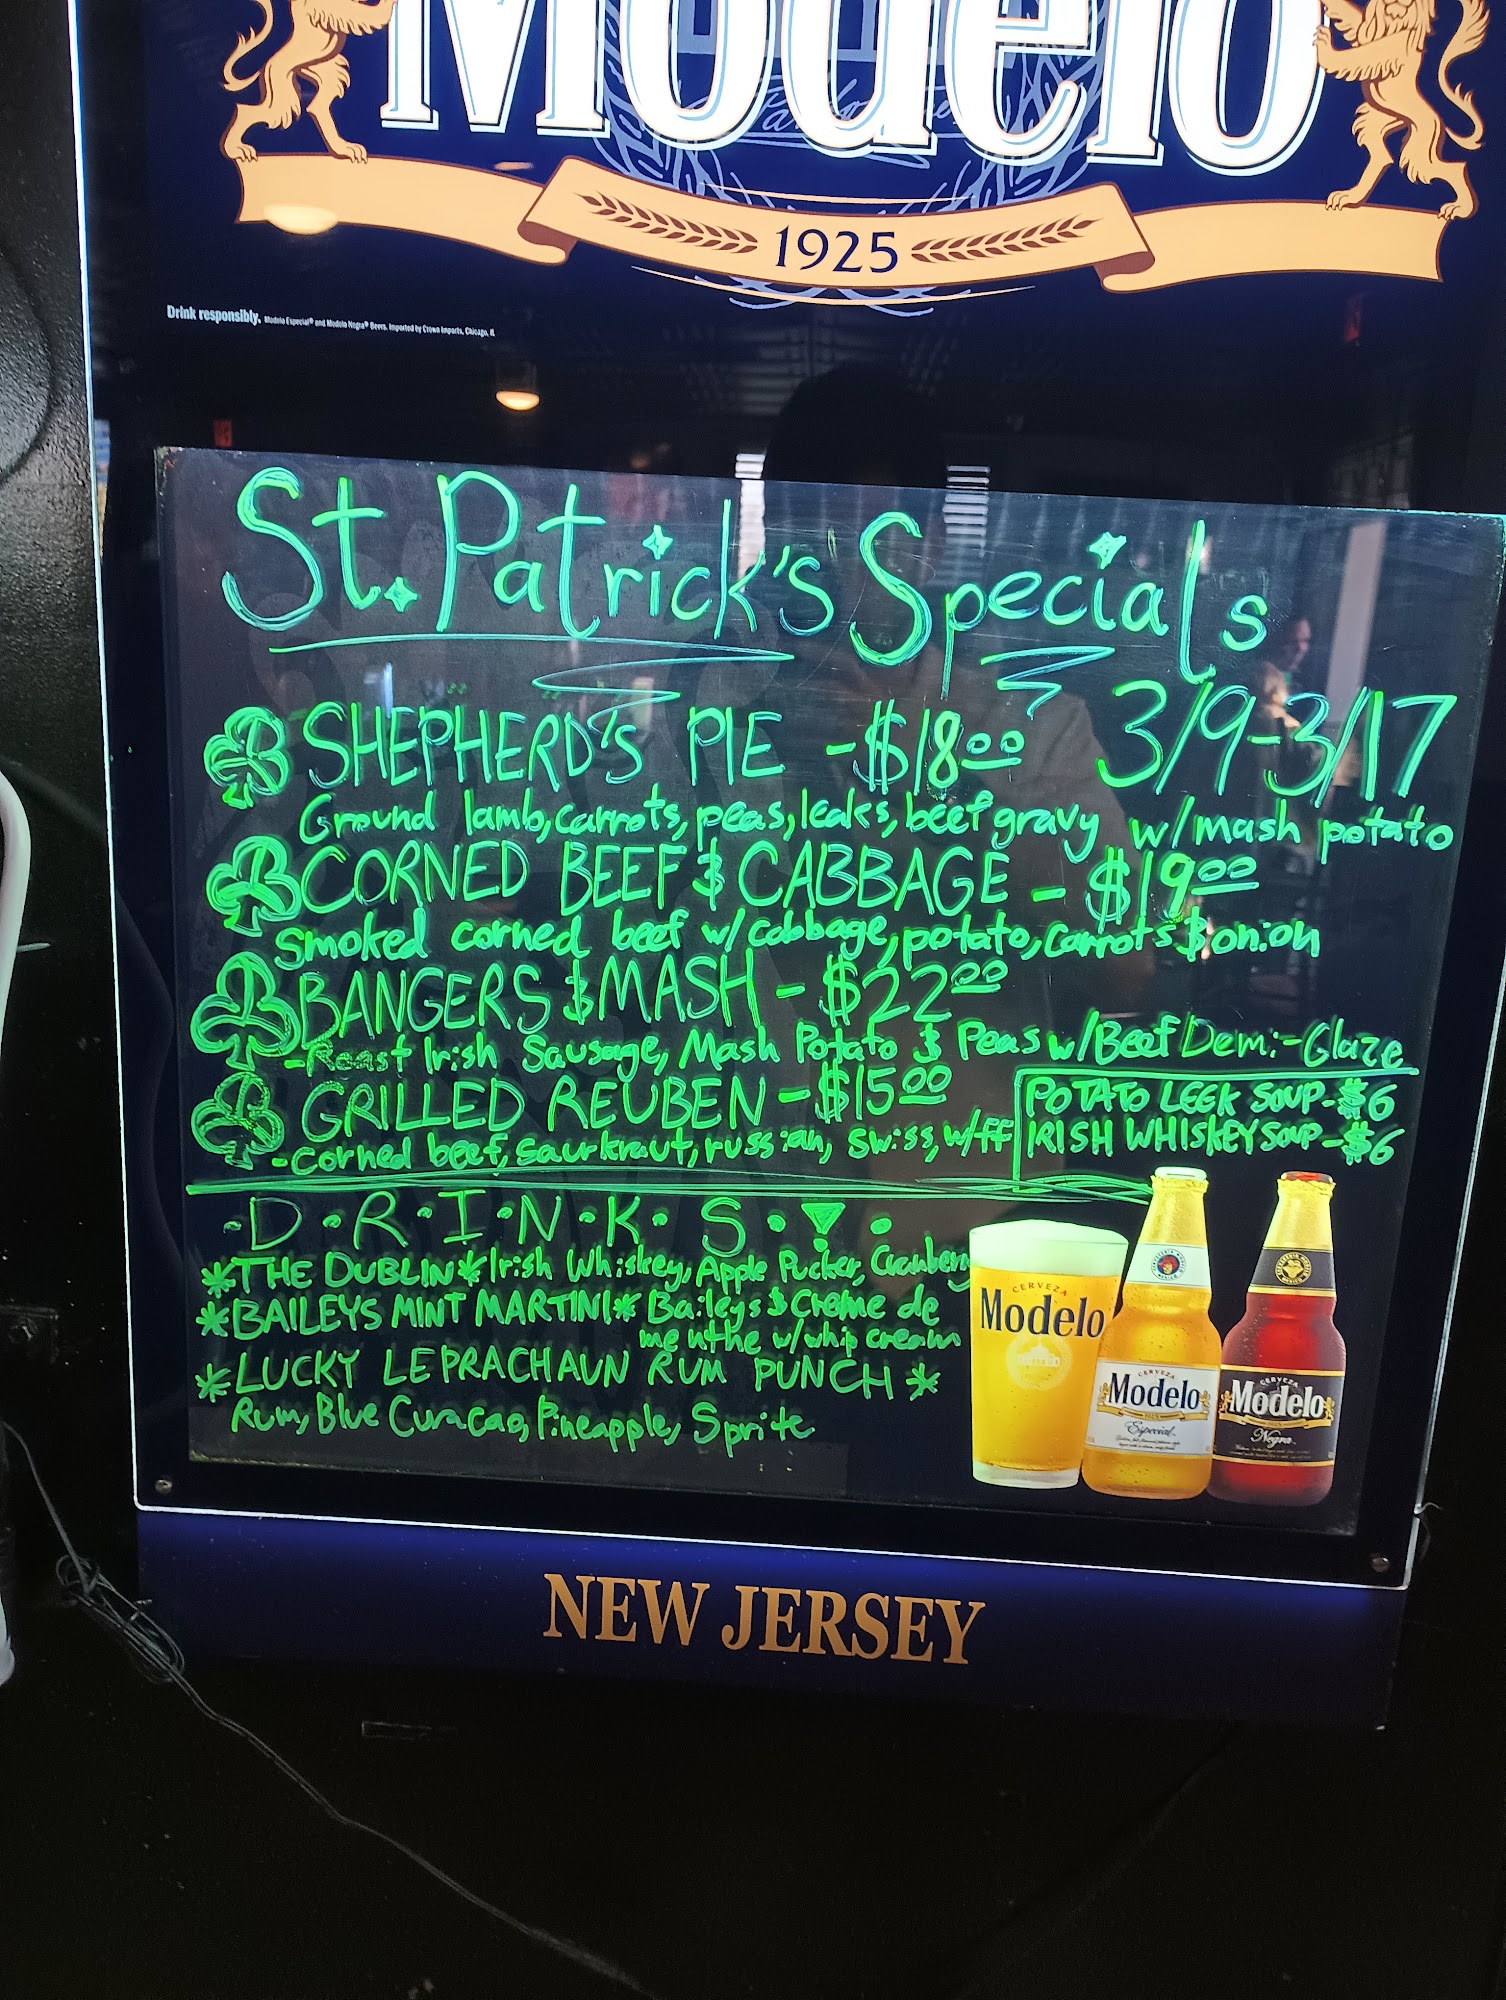 Modelo
1925
Drink responsibly. Modelo Especial® and Modelo Negra® Beers. Imported by Crown Imports, Chicago, IL
St. Patrick's Specials
3/9-3/17
SHEPHERD'S PIE - $18.00
Ground lamb, carrots, peas, leaks, beef gravy w/mash potato
CORNED BEEF & CABBAGE - $19.00
Smoked corned beef w/ cabbage, potato, carrots & onion
BANGERS & MASH - $22.00
-Roast Irish Sausage, Mash Potato & Peas w/Beef Demi-Glaze
GRILLED REUBEN - $15.00
-Corned beef, saurkraut, russian, swiss, w/ff
POTATO LEEK SOUP - $6
IRISH WHISKEY SOUP - $6
·D·R·I·N·K·S·
*THE DUBLIN* Irish Whiskey, Apple Pucker, Cranberry
*BAILEYS MINT MARTINI* Baileys & Creme de
menthe w/whip cream
*LUCKY LEPRACHAUN RUM PUNCH*
Rum, Blue Curacao, Pineapple, Sprite
CERVEZA
Modelo
CERVEZA
Modelo
Especial
CERVEZA
Modelo
Negra
NEW JERSEY